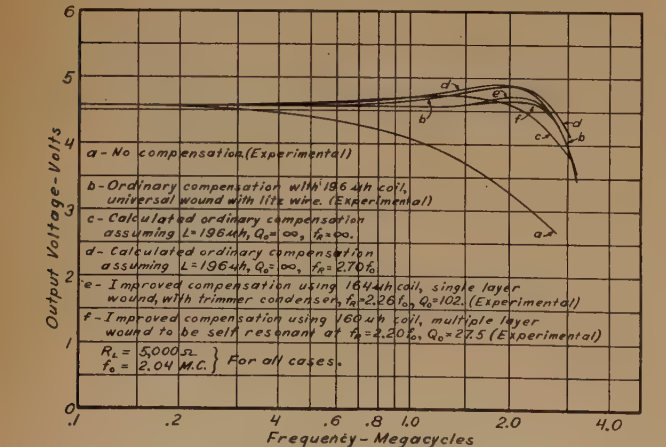 6
5
4
3
2
1
0
Output Voltage-Volts
d
e
b
f
d
b
c
a
a-No compensation.(Experimental)
b-Ordinary compensation with 196 µh coil,
universal wound with litz wire. (Experimental)
c-Calculated ordinary compensation
assuming L=196µh, Q₀=∞, f_R=∞.
d-Calculated ordinary compensation
assuming L=196µh, Q₀=∞, f_R=2.70f₀
e-Improved compensation using 164µh coil, single layer
wound, with trimmer condenser, f_R=2.26f₀, Q₀=102. (Experimental)
f-Improved compensation using 160 µh coil, multiple layer
wound to be self resonant at f_R=2.20f₀, Q₀=27.5 (Experimental)
R_L = 5,000Ω
f₀ = 2.04 M.C. } For all cases.
.1 .2 .4 .6 .8 1.0 2.0 4.0
Frequency-Megacycles